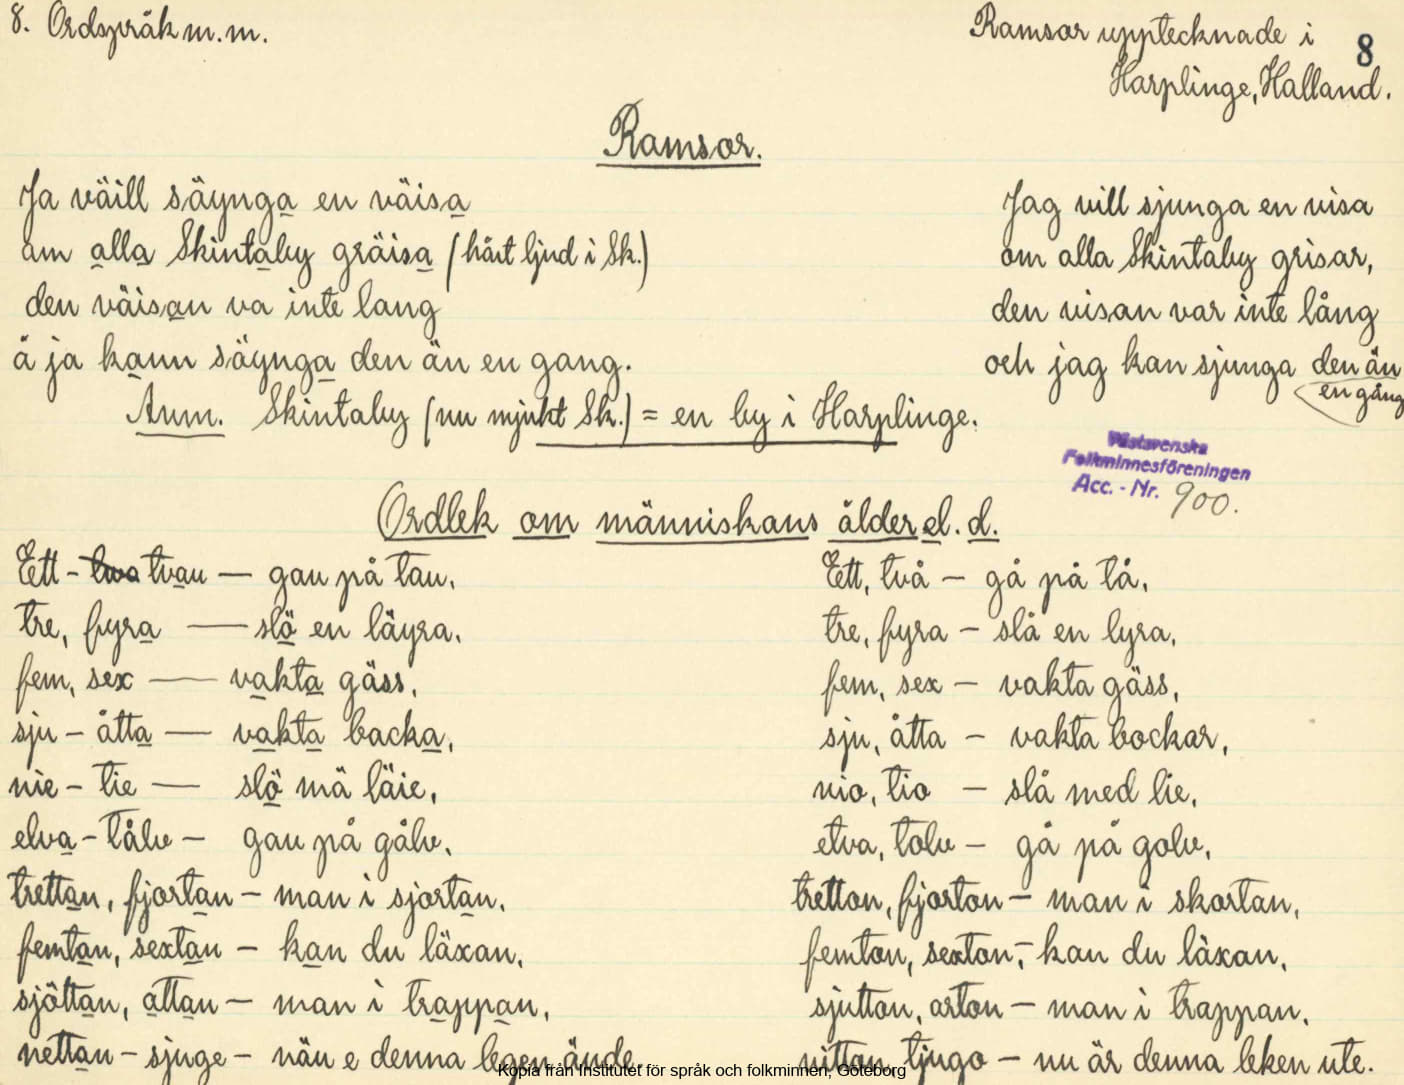 8. Ordspråk m.m.
Ramsor upptecknade i
8
Harplinge, Halland.
Ramsor.
Ja väill säynga en väisa
am alla Skintaby gräisa (hårt ljud i Sk.)
den väisan va inte lang
å ja kann säynga den än en gang.
Jag vill sjunga en visa
om alla Skintaby grisar,
den visan var inte lång
och jag kan sjunga den än
en gång
Anm. Skintaby (nu mjukt Sk.) = en by i Harplinge.
Västsvenska
Folkminnesföreningen
Acc. - Nr. 900.
Ordlek om människans ålder el. d.
Ett - tva tvau — gau på tau.
tre, fyra — slö en läyra.
fem, sex — vakta gäss.
sju - åtta — vakta backa.
nie - tie — slö mä läie.
elva - tålv — gau på gålv.
trettan, fjortan - man i sjortan.
femtan, sextan - kan du läxan.
sjöttan, attan - man i trappan.
nettan - sjuge - näu e denna legen äude.
Ett, två - gå på tå.
tre, fyra - slå en lyra.
fem, sex - vakta gäss.
sju, åtta - vakta bockar.
nio, tio - slå med lie.
elva, tolv - gå på golv.
tretton, fjorton - man i skortan.
femton, sexton, - kan du läxan.
sjutton, arton - man i trappan.
nitton, tjugo - nu är denna leken ute.
Kopia från Institutet för språk och folkminnen, Göteborg